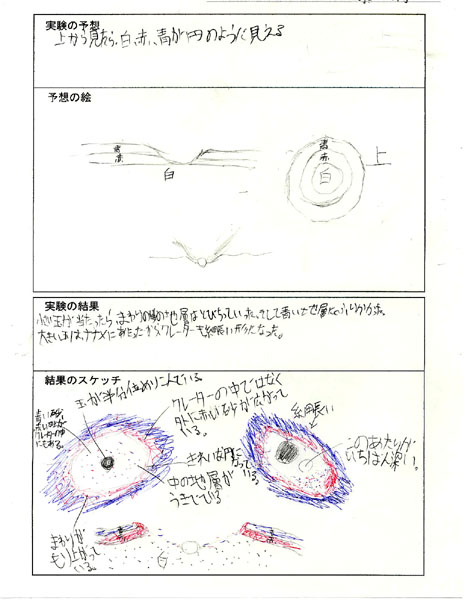 実験の予想
上から見たら、白、赤、青が円のように見える
予想の絵
青
赤
白
青
赤
白
上
実験の結果
小さい玉が当たったら、まわりの
地層はとびちっていた。そして青い地層
大きい玉は、ナナメにあたったからクレーターも細長いがたになった。
結果のスケッチ
玉が半分位めりこんでいる。
クレーターの中ではなく
外に赤い砂が広がって
いる。
細長い
このあたりが
いちばん深い。
きれいな円に
なって
いる。
中の地層が
うきでている
まわりが
もり上がって
いる。
青
赤
白
青
赤